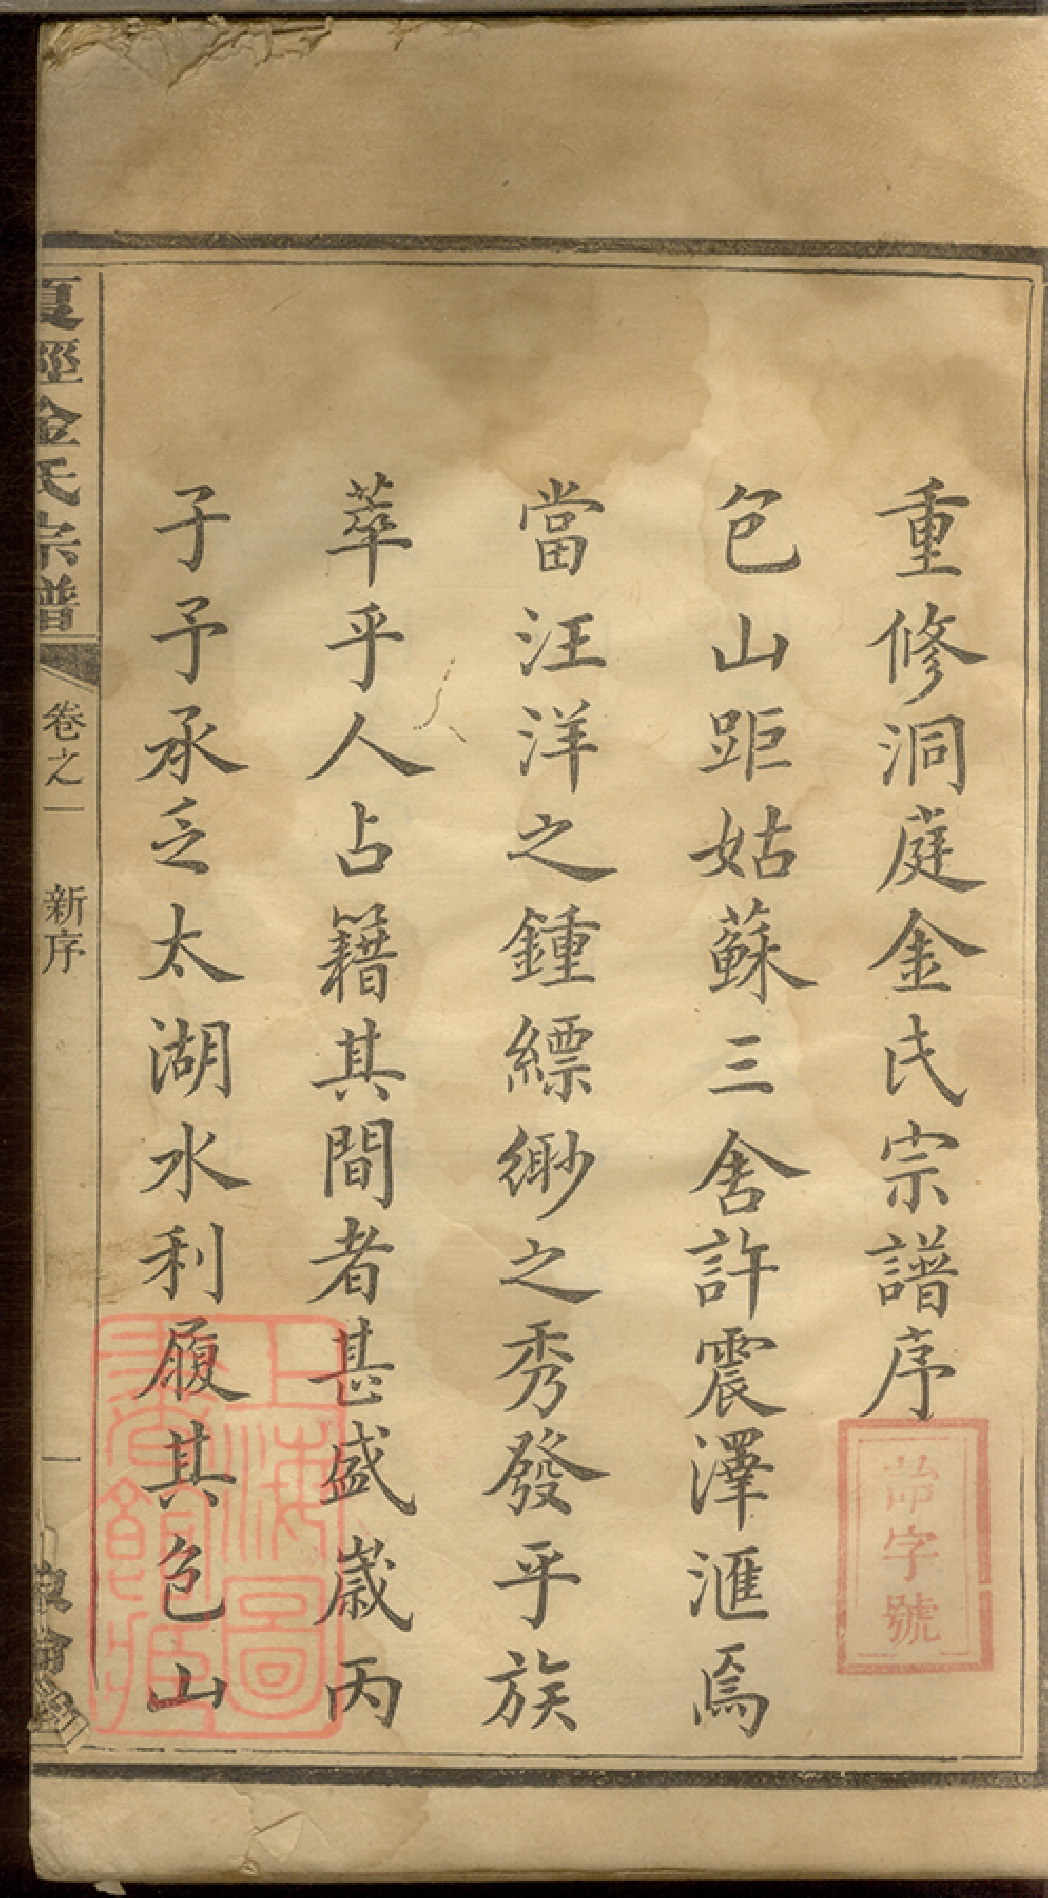 重修洞庭金氏宗譜序
包山距姑蘇三舍許震澤滙焉
當汪洋之鍾縹緲之秀發乎族
萃乎人占籍其間者甚盛歲丙
子予承乏太湖水利履其包山
夏逕金氏宗譜
卷之一
新序
一
字號
上海圖書館藏